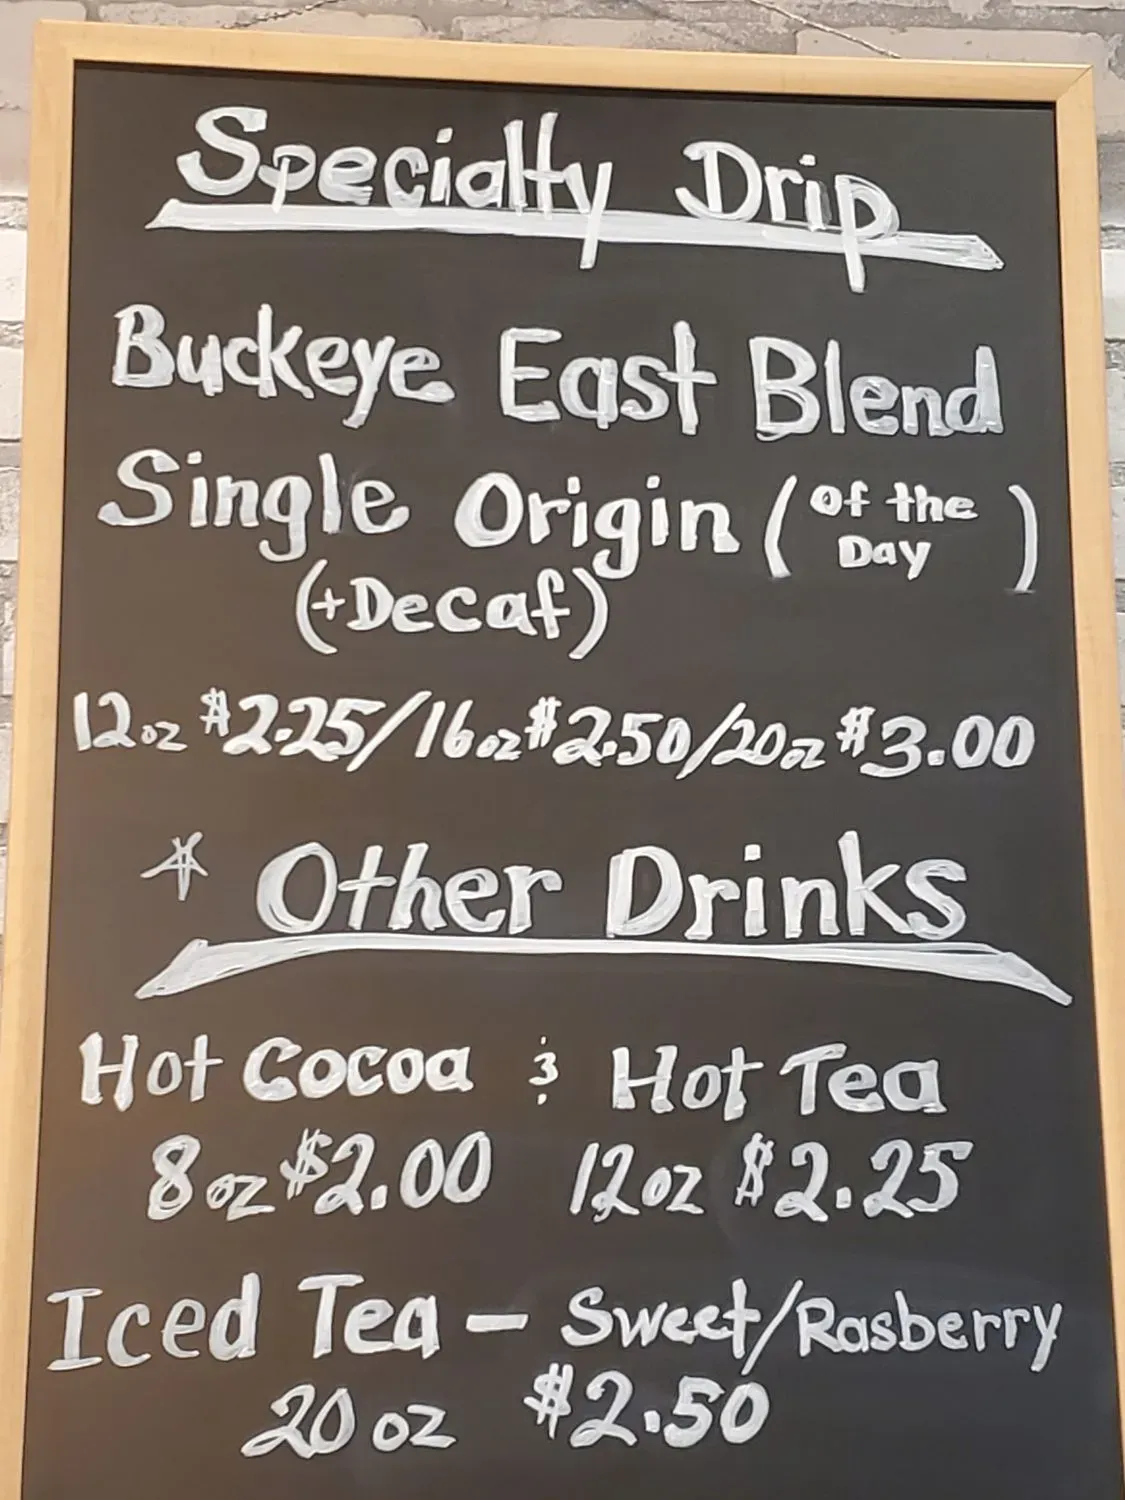 Specialty Drip
Buckeye East Blend
Single Origin (of the Day)
(+Decaf)
12oz $2.25/16oz $2.50/20oz $3.00
* Other Drinks
Hot Cocoa & Hot Tea
8oz $2.00 12oz $2.25
Iced Tea - Sweet/Rasberry
20 oz $2.50